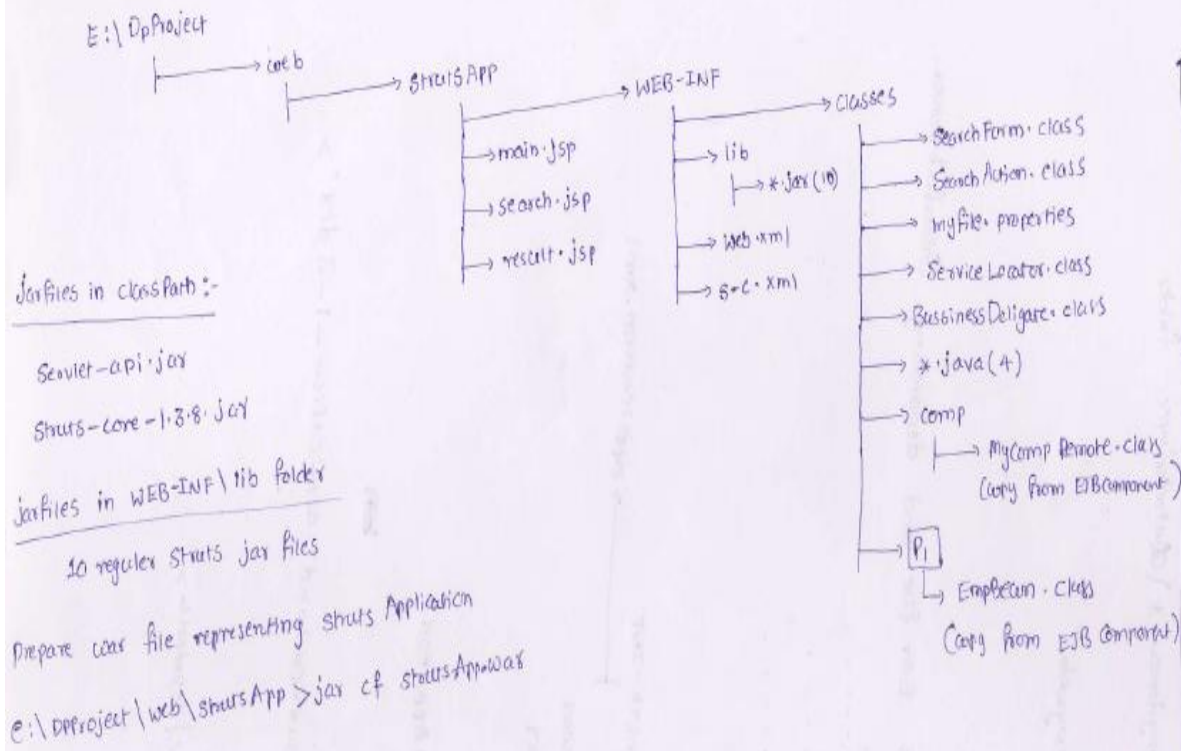 E:\DpProject
web
StrutsApp
main.jsp
search.jsp
result.jsp
WEB-INF
lib
*.jar(10)
web.xml
s-c.xml
classes
SearchForm.class
SearchAction.class
myfile.properties
ServiceLocator.class
BussinessDeligate.class
*.java(4)
comp
MyComp Remote.class
(copy from EJBComponent)
P1
EmpBean.class
(copy from EJB Component)
Jarfiles in classPath :-
Servlet-api.jar
Struts-core-1.3.8.jar
jarfiles in WEB-INF\lib folder
10 reguler struts jar files
prepare war file representing struts Application
e:\DpProject\web\strutsApp>jar cf strutsApp.war